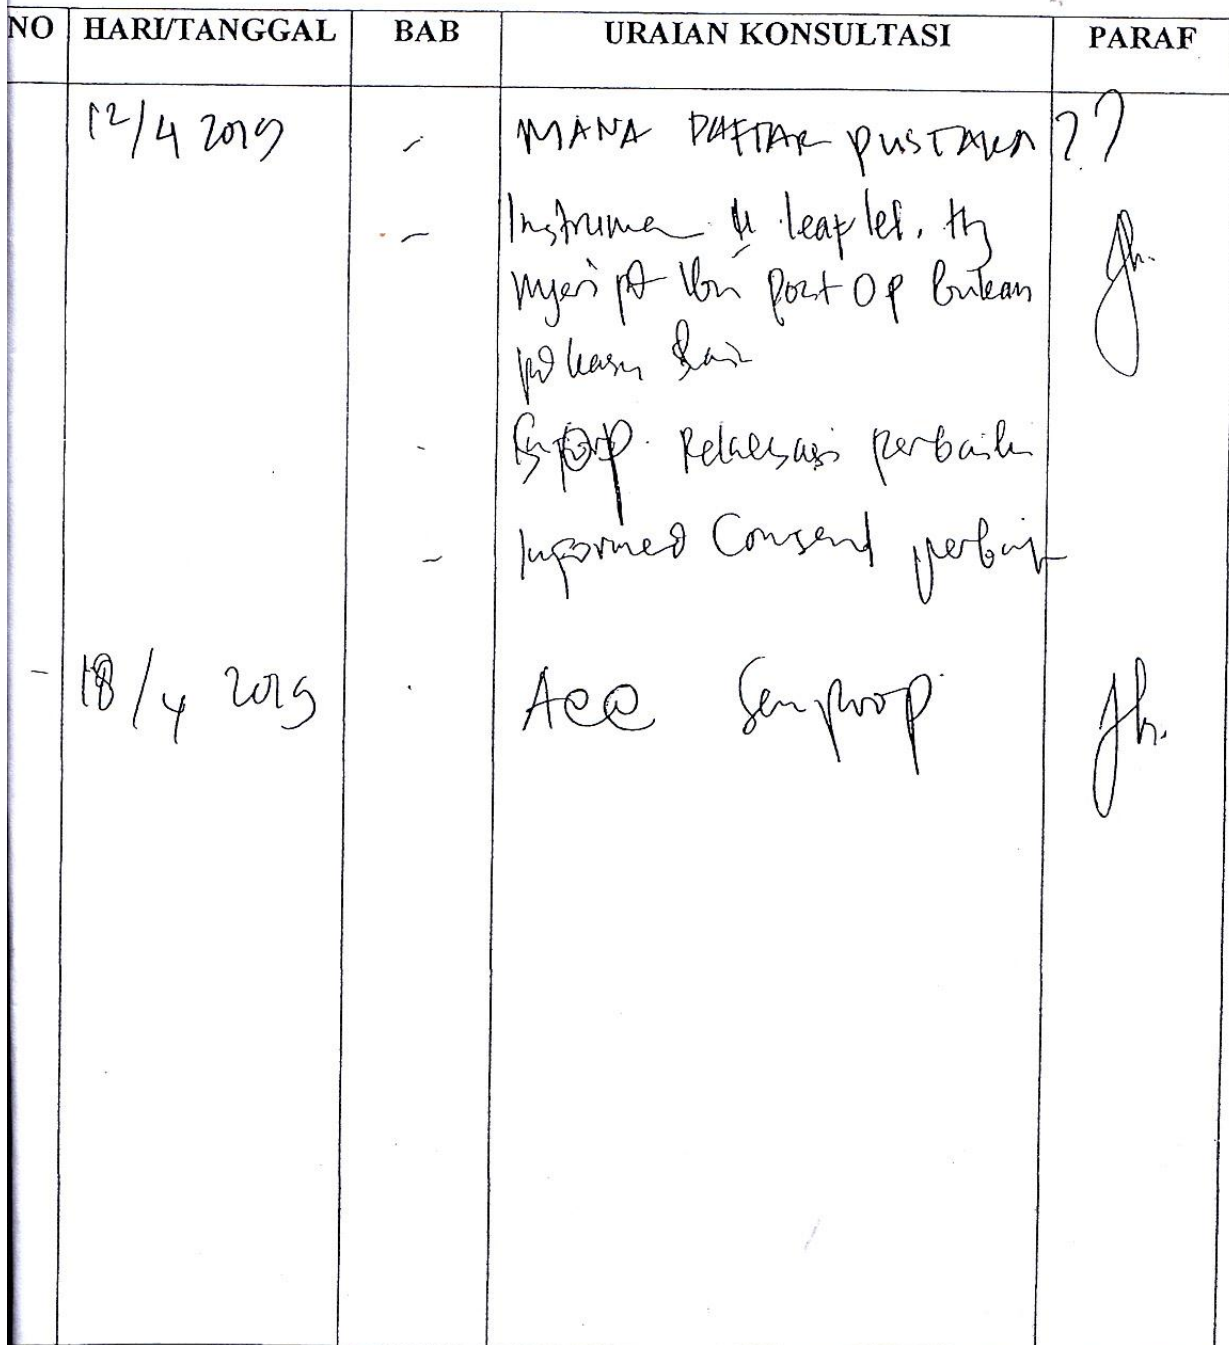 NO HARI/TANGGAL BAB URAIAN KONSULTASI PARAF
12/4 2019 - MANA DAFTAR PUSTAKA ??
- Instrumen leaflet. ttg
nyeri pd Ibu post Op bukan
pd kasus
- SOP Relaksasi perbaiki
- Informed Consend perbaiki
- 18/4 2019 - Acc Semprop